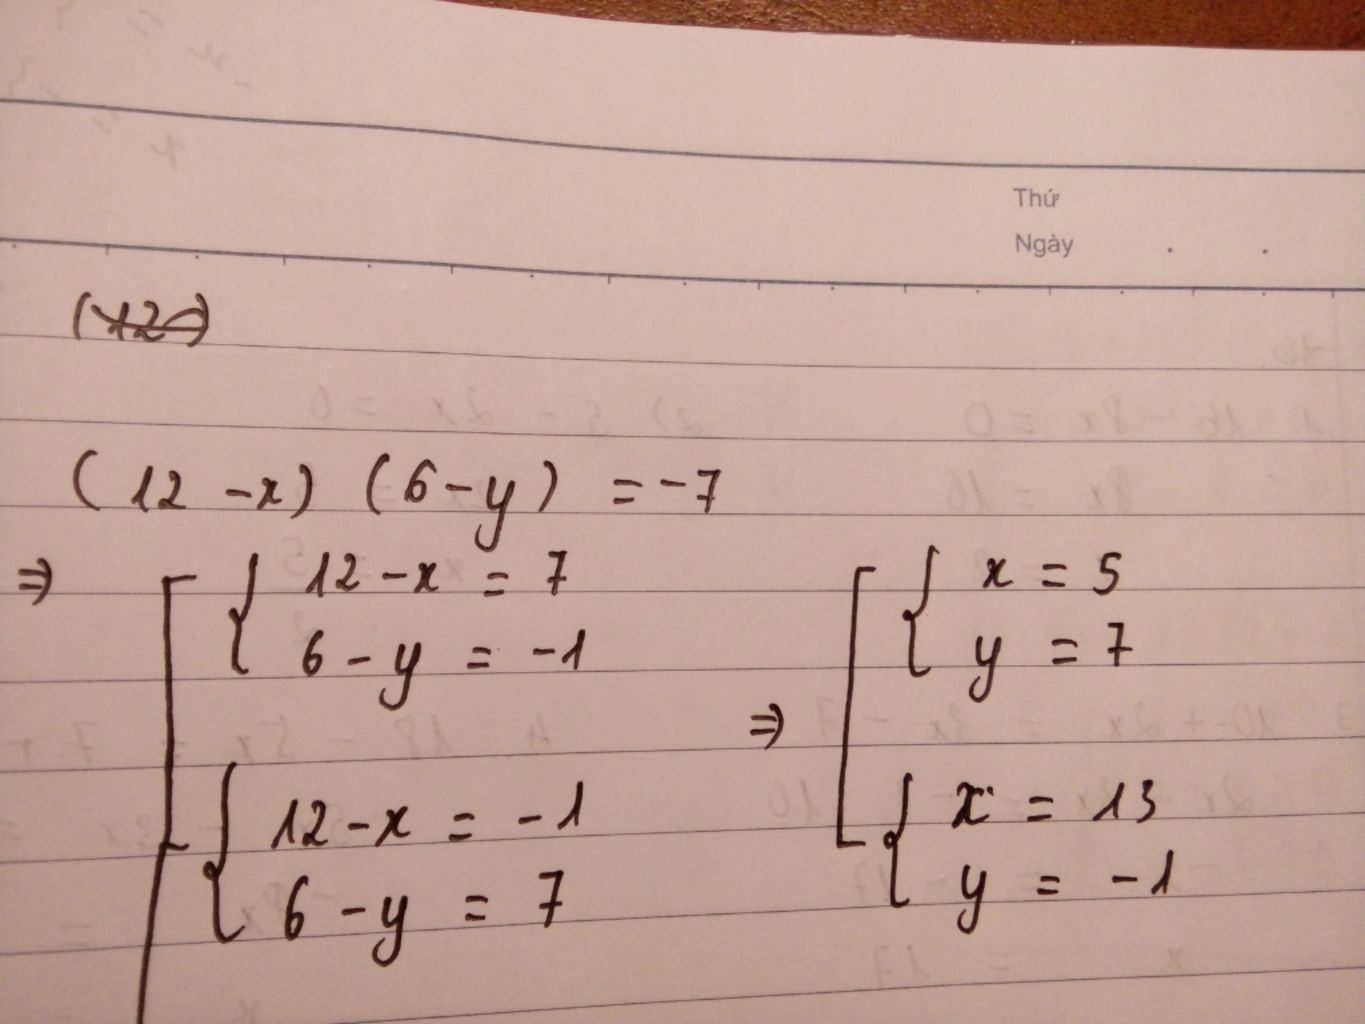 Thứ
Ngày
(12 - x) (6 - y) = -7
⇒ [ { 12 - x = 7
6 - y = -1
{ 12 - x = -1
6 - y = 7
⇒ [ { x = 5
y = 7
{ x = 13
y = -1